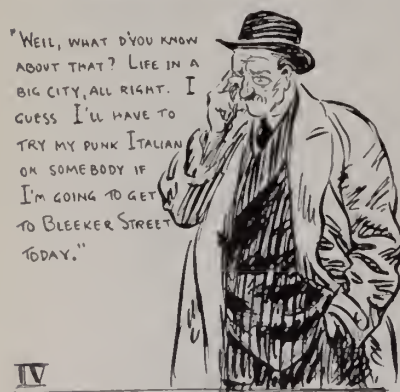 "WELL, WHAT D'YOU KNOW
ABOUT THAT? LIFE IN A
BIG CITY, ALL RIGHT. I
GUESS I'LL HAVE TO
TRY MY PUNK ITALIAN
ON SOMEBODY IF
I'M GOING TO GET
TO BLEEKER STREET
TODAY."
IV